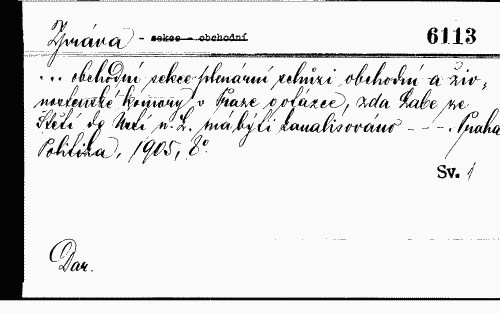 Zpráva - sekce - obchodní 6113
... obchodní sekce plenární schůzi obchodní a živ-
nostenské komory v Praze o otázce, zda Labe ze
Štětí do Ústí n. L. má býti kanalisováno - - - . Praha
Politika, 1905, 8°.
Sv. 1
Dar.